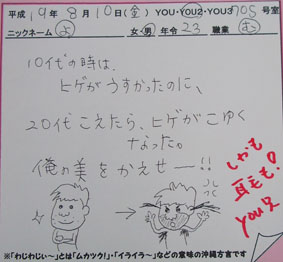 平成19年8月10日(金) YOU・YOU2・YOU3 708号室
ニックネーム よ 女・男 年令 23 職業 む
10代の時は、
ヒゲがうすかったのに、
20代こえたら、ヒゲがこゆく
なった。
俺の美をかえせー!!
しかも
耳毛も!
YOU2
※「わじわじぃ〜」とは「ムカツク!」・「イライラ〜」などの意味の沖縄方言です